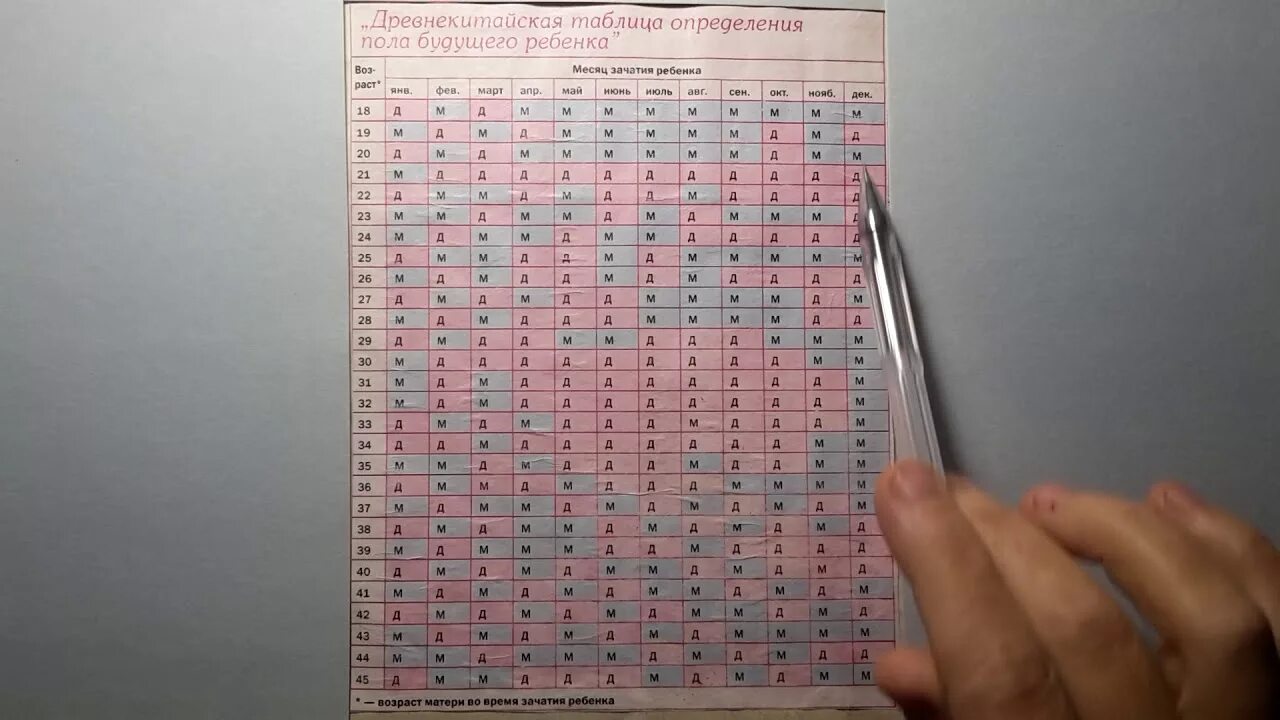 „Древнекитайская таблица определения
пола будущего ребенка”
Воз-
раст* Месяц зачатия ребенка
янв. фев. март апр. май июнь июль авг. сен. окт. нояб. дек.
18 Д М Д М М М М М М М М М
19 М Д М Д М М М М М Д М Д
20 Д М Д М М М М М М Д М М
21 М Д Д Д Д Д Д Д Д Д Д Д
22 Д М М Д М Д Д М Д Д Д Д
23 М М Д М М Д М Д М М М Д
24 М Д М М Д М М Д Д Д Д Д
25 Д М М Д Д М Д М М М М М
26 М Д М Д Д М Д М Д Д Д Д
27 Д М Д М Д Д М М М М Д М
28 М Д М Д Д Д М М М М Д Д
29 Д М Д Д М М Д Д Д М М М
30 М Д Д Д Д Д Д Д Д Д М М
31 М Д М Д Д Д Д Д Д Д Д М
32 М Д М Д Д Д Д Д Д Д Д М
33 Д М Д М Д Д Д М Д Д Д М
34 Д Д М Д Д Д Д Д Д Д М М
35 М М Д М Д Д Д М Д Д М М
36 Д М М Д М Д Д Д М М М М
37 М Д М М Д М Д М Д М Д М
38 Д М Д М М Д М Д М Д М Д
39 М Д М М М Д Д М Д Д Д Д
40 Д М Д М Д М М Д М Д М Д
41 М Д М Д М Д М М Д М Д М
42 Д М Д М Д М Д М М Д М Д
43 М Д М Д М Д М Д М М М М
44 М М Д М М М Д М Д М Д Д
45 Д М М Д Д Д М Д М Д М М
* — возраст матери во время зачатия ребенка